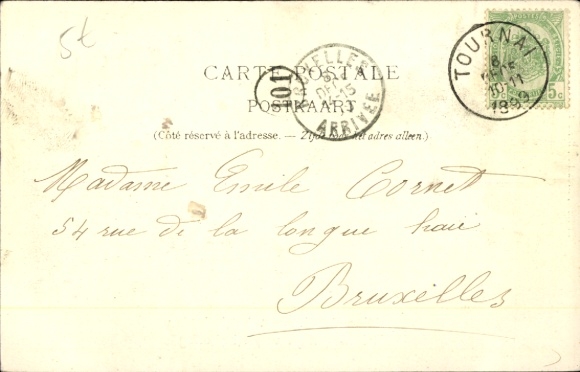 5t
CARTE POSTALE
POSTKAART
(Côté réservé à l'adresse. — Zijde voor het adres alleen.)
BRUXELLES
8
DEC
15
ARRIVÉE
101
TOURNAI
8
DEC
10-11
1899
POSTES
5c
Madame Emile Cornet
54 rue de la longue haie
Bruxelles